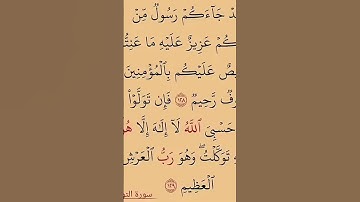 جَآءَكُمۡ رَسُولٞ مِّنۡ
عَزِيزٌ عَلَيۡهِ مَا عَنِتُّ
عَلَيۡكُم بِٱلۡمُؤۡمِنِينَ
رَّحِيمٞ ١٢٨ فَإِن تَوَلَّوۡاْ
حَسۡبِيَ ٱللَّهُ لَآ إِلَٰهَ إِلَّا هُ
تَوَكَّلۡتُۖ وَهُوَ رَبُّ ٱلۡعَرۡشِ
ٱلۡعَظِيمِ ١٢٩
سورة التو